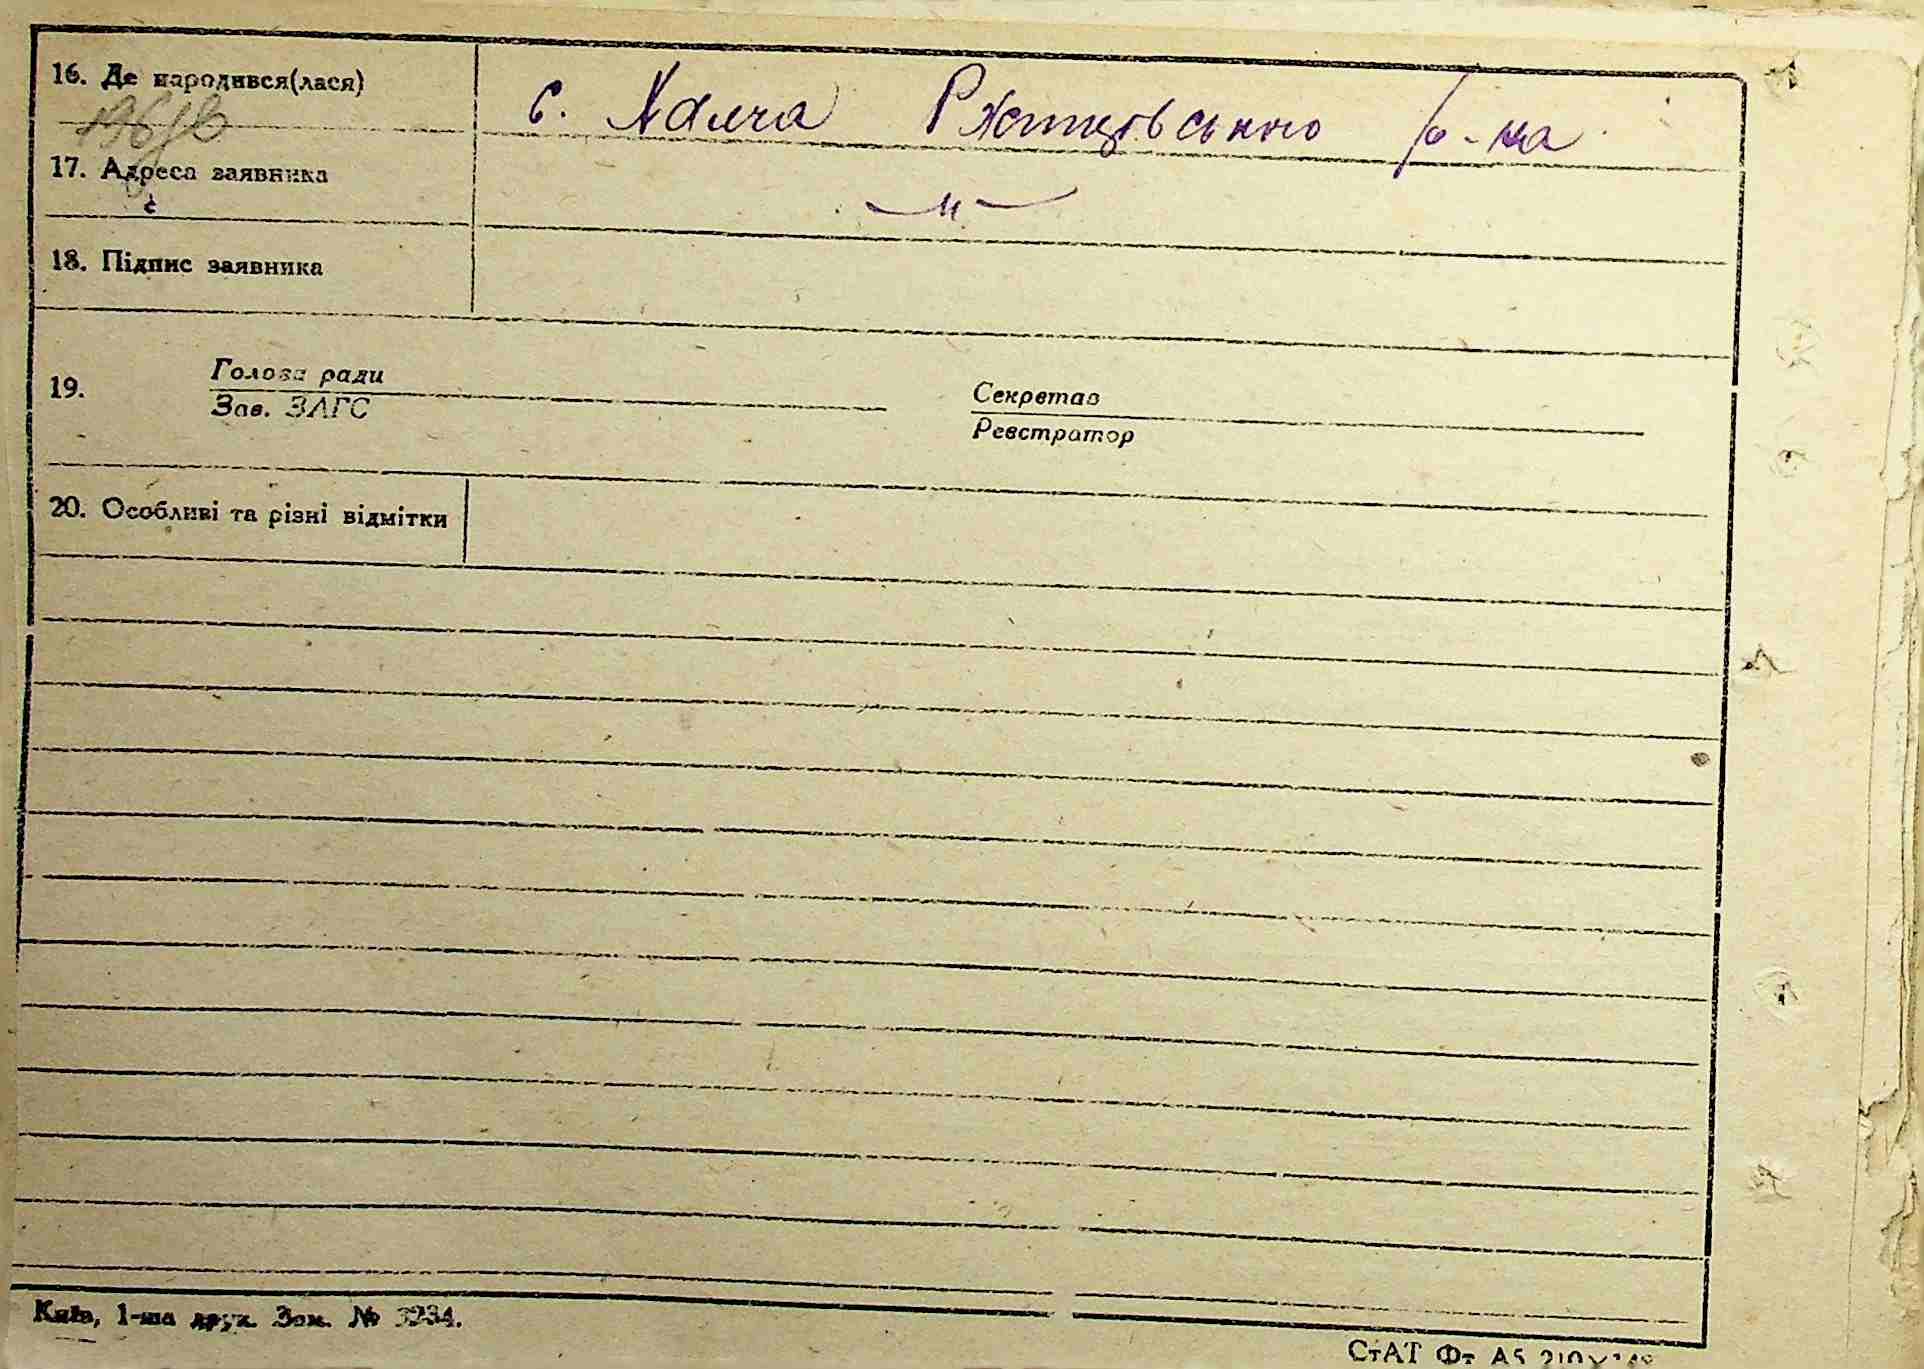 16. Де народився(лася) с. Халча Ржищівського р-на
17. Адреса заявника —"—
18. Підпис заявника
19. Голова ради Секретар
Зав. ЗАГС Реєстратор
20. Особливі та різні відмітки
Київ, 1-ша друк. Зам. № 3234.
СтАТ Фт А5 210×148